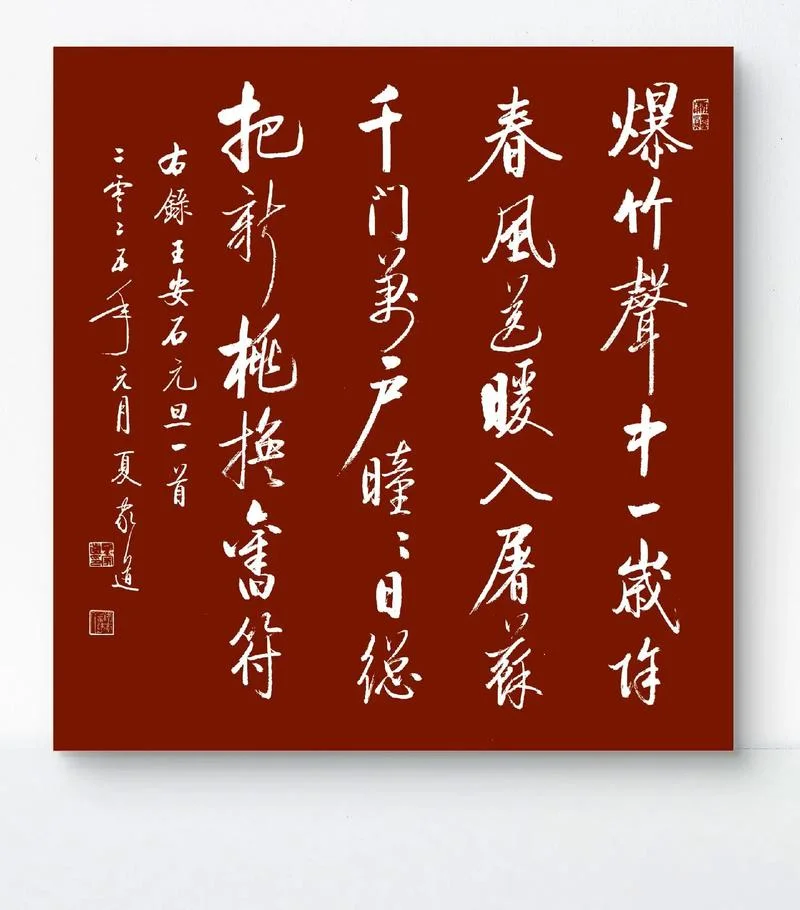 爆竹聲中一歲除
春風送暖入屠蘇
千门萬戶瞳〻日總
把新桃換舊符
右錄王安石元旦一首
二零二五年元月夏家道